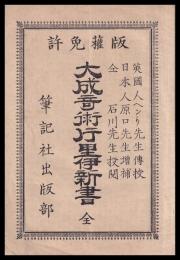 版權免許
英國人ヘンリ先生傳授
日本人原口先生增補
仝 石川先生校閲
大成奇術行里伊新書 全
筆記社出版部